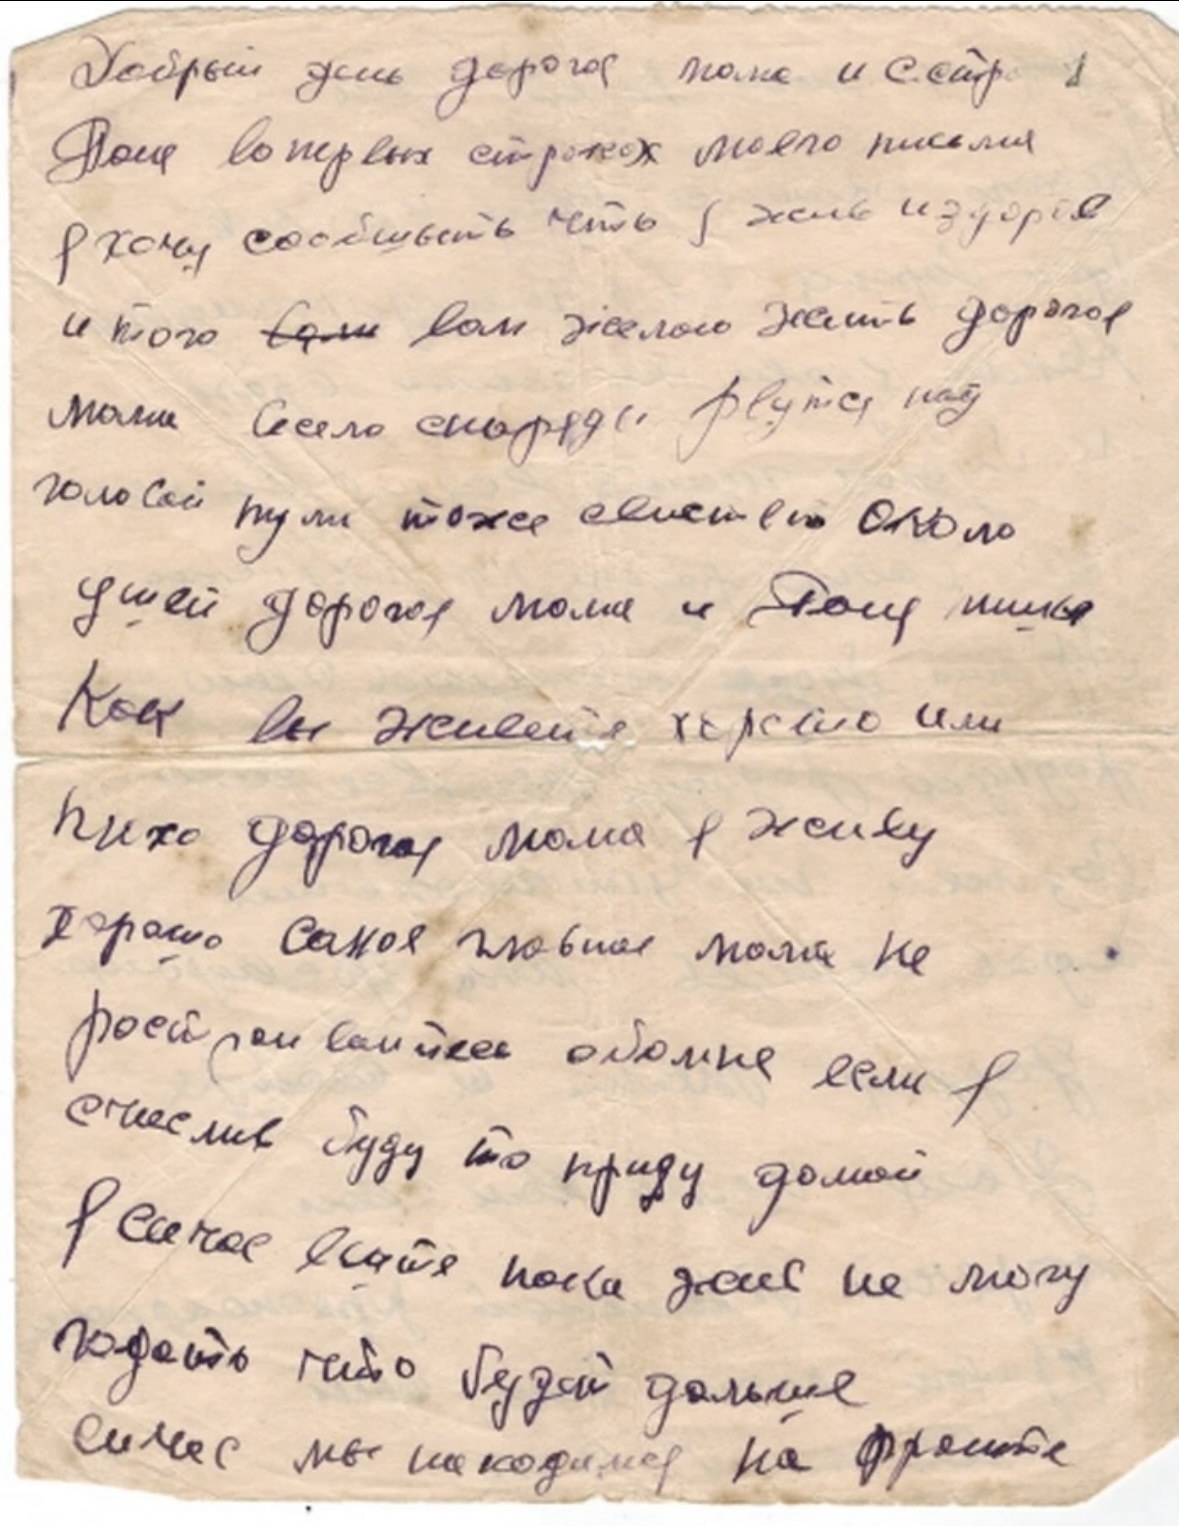 Добрый день дорогая мама и сестра
Тоня вопервых строках моего письма
я хочу сообшыть что я жив издоров
и того вам вам желаю жить дорогая
мама весело снаряды рвутся над
головой пули тоже свистят около
ушей дорогая мама и Тоня пишы
Как вы живете хорошо или
плхо дорогая мама я живу
хорошо самое главное мама не
росстраивайтесь обомне если я
счеслив буду то приду домой
я сичас видите пока жив не могу
гадать что будет дальше
сичас мы находимся на фронте